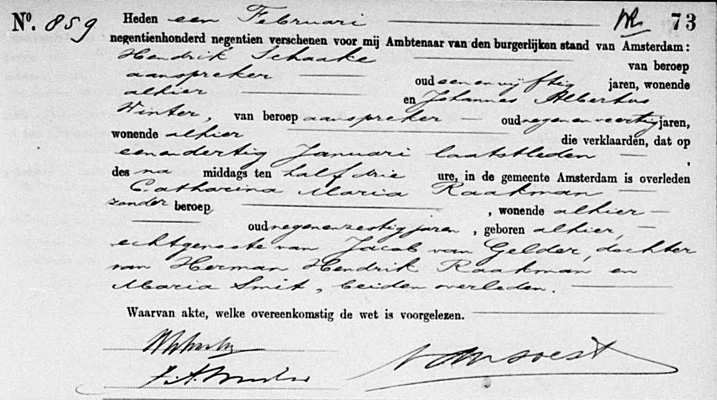 No. 859 Heden een Februari 73
negentienhonderd negentien verschenen voor mij Ambtenaar van den burgerlijken stand van Amsterdam:
Hendrik Schaake van beroep
aanspreker oud een en vijftig jaren, wonende
alhier en Johannes Albertus
Winter, van beroep aanspreker oud negen en veertig jaren,
wonende alhier die verklaarden, dat op
eenendertig Januari laatstleden ,
des na middags ten half drie ure, in de gemeente Amsterdam is overleden
Catharina Maria Raakman
zonder beroep, , wonende alhier
oud negenenzestig jaren, geboren alhier,
echtgenoote van Jacob van Gelder, dochter
van Herman Hendrik Raakman en
Maria Smit, beiden overleden.
Waarvan akte, welke overeenkomstig de wet is voorgelezen.